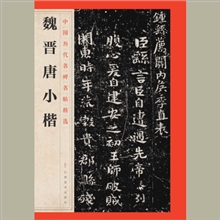 中国历代名碑名帖精选
魏晋唐小楷
鍾繇薦關內侯季直表
臣繇言臣自遭遇先帝忝列
腹心爰自建安之初王師破賊
關東時年荒穀貴郡縣殘